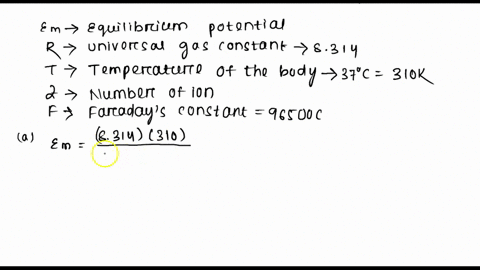 Em → Equilibrium potential
R → Universal gas constant → 8.314
T → Temperature of the body → 37°C = 310K
Z → Number of ion
F → Faraday's constant = 96500C
(a) Em = (8.314) (310)